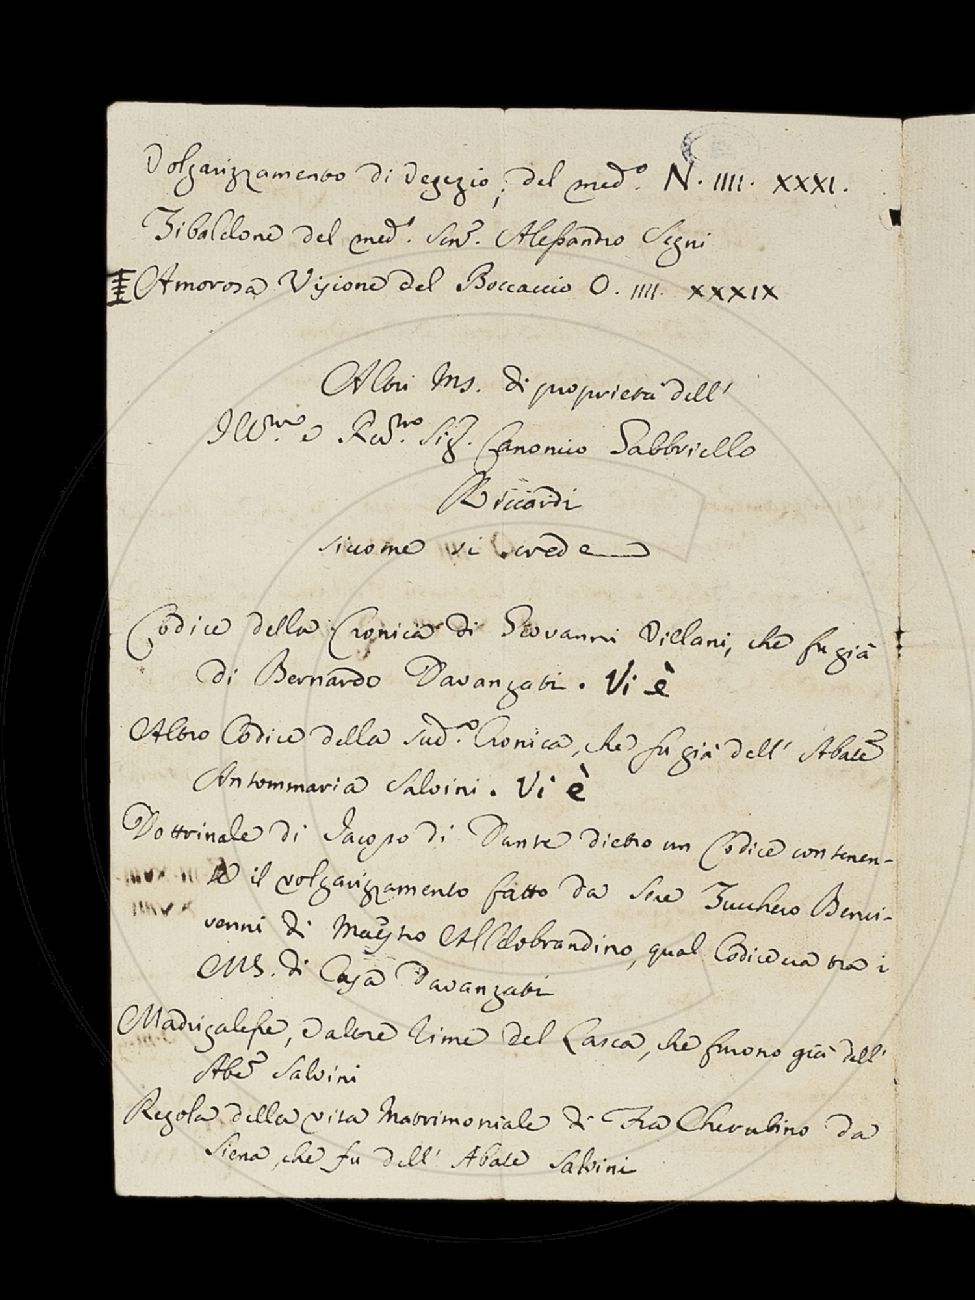 Volgarizzamento di Vegezio, del med.º N. IIII. XXXI.
Zibaldone del med.º Sen.e Alessandro Segni
Amorosa Visione del Boccaccio O. IIII. XXXIX
Altri Ms. di proprietà dell'
Ill.mo e Rev.mo Sig. Canonico Gabbriello
Riccardi
siccome si crede
Codice della Cronica di Giovanni Villani, che fu già
di Bernardo Davanzati. Vi è
Altro Codice della sud.ª Cronica, che fu già dell' Abate
Antommaria Salvini. Vi è
Dottrinale di Jacopo di Dante dietro un Codice contenen-
te il volgarizzamento fatto da Sere Zucchero Benci-
venni di Maestro Aldobrandino, qual Codice era tra i
MS. di Casa Davanzati
Madrigalesse, e altre Rime del Lasca, che furono già dell'
Abe Salvini
Regola della vita Matrimoniale di Fra Cherubino da
Siena, che fu dell' Abate Salvini